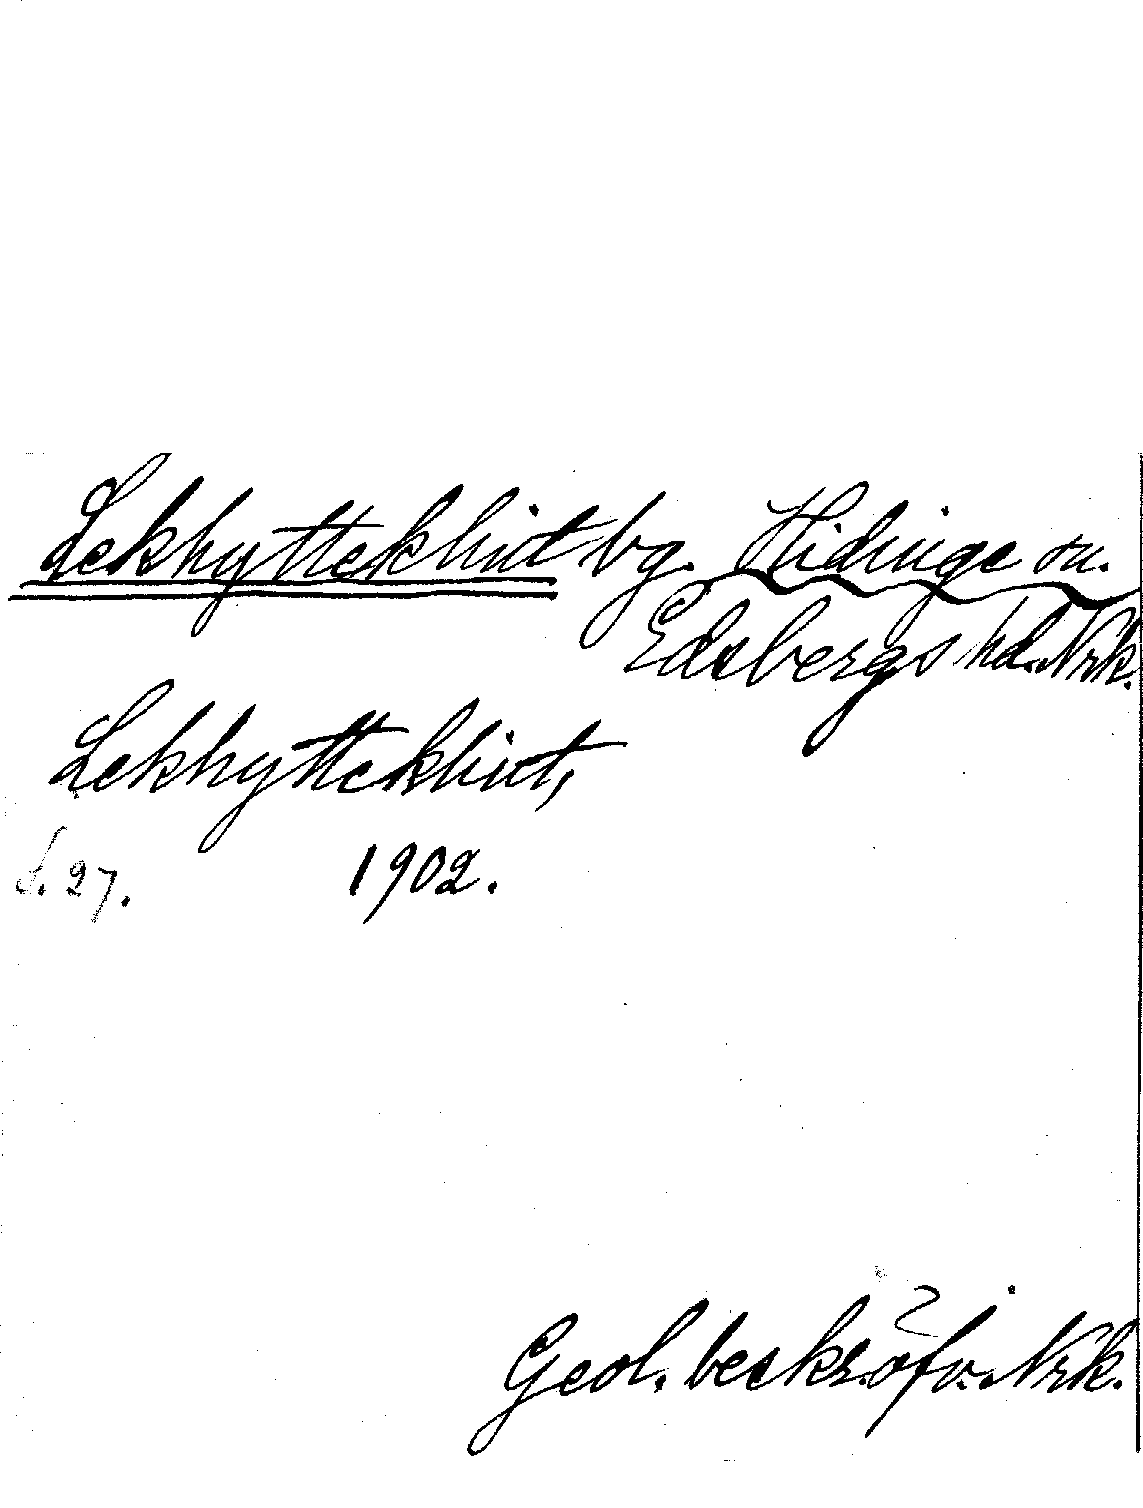 Lekhytteklint bg. Hidinge sn.
Edsbergs hd. Nrk.
Lekhytteklint,
S. 27. 1902.
Geol. beskr. öfv. Nrk.